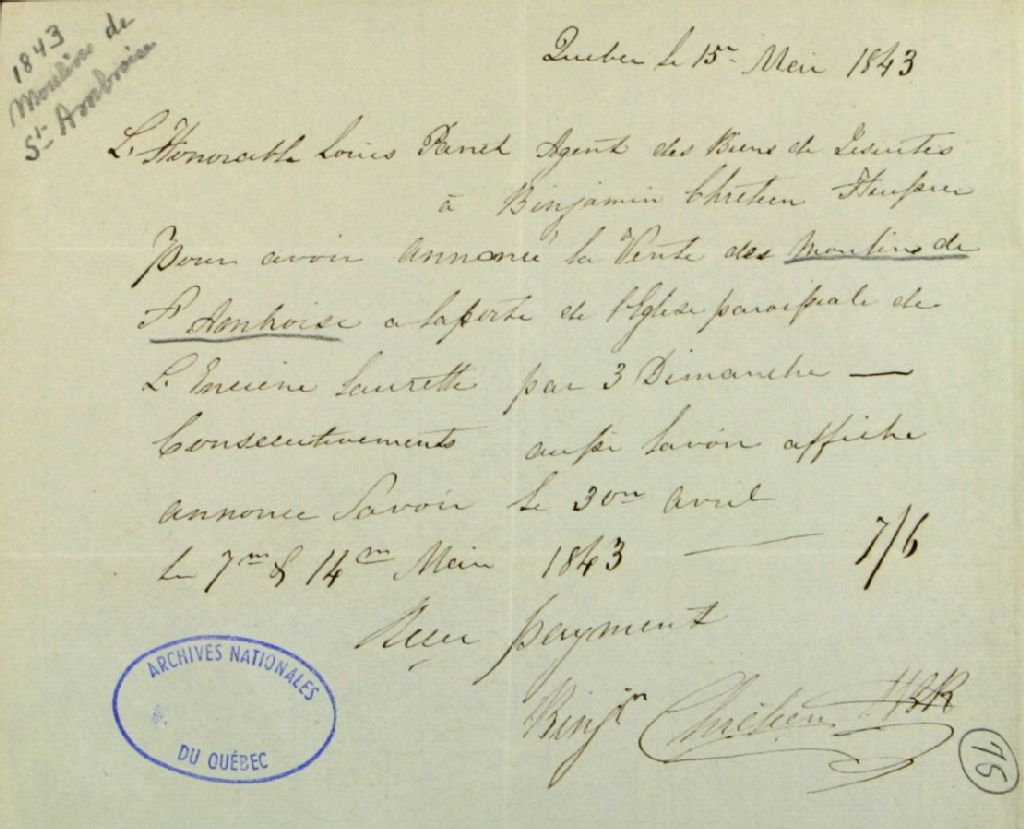 1843
Moulins de
St Ambroise
Quebec le 15 Mai 1843
L. Honorable Louis Panet Agent des Biens de Jesuites
à Binjamin Chretien
Pour avoir annoncé la Vente des Moulins de
St Ambroise a laporte de l'Eglise paroissiale de
L. Enciene Laurette par 3 Dimanche —
Consecutivements aussi Lavoir affiche
annonce Savoir le 30m avril
le 7m & 14m Mai 1843 — 7/6
Recu payment
Binjn Chretien HBR
ARCHIVES NATIONALES
DU QUÉBEC
75